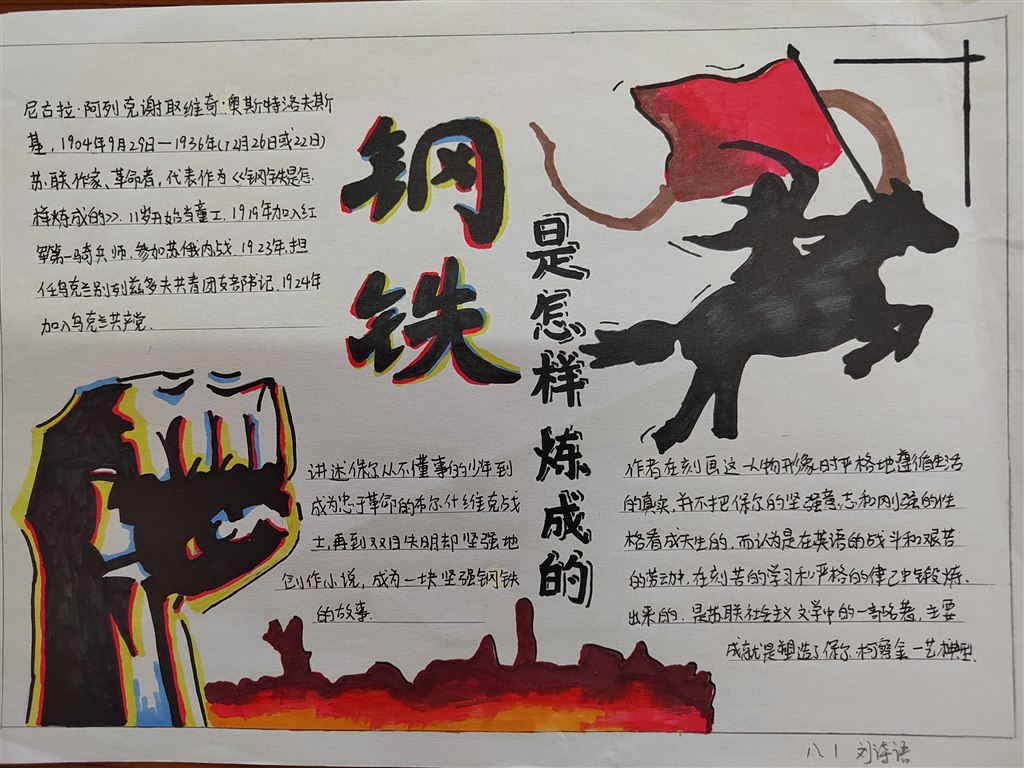 尼古拉·阿列克谢耶维奇·奥斯特洛夫斯
基，1904年9月29日—1936年(12月26日或22日)
苏联作家、革命者，代表作为《钢铁是怎
样炼成的》。11岁开始当童工，1919年加入红
军第一骑兵师，参加苏俄内战。1923年担
任乌克兰别列兹多夫共青团支部书记，1924年
加入乌克兰共产党.
钢铁
是怎样炼成的
讲述保尔从不懂事的少年到
成为忠于革命的布尔什维克战
士，再到双目失明却坚强地
创作小说，成为一块坚强钢铁
的故事.
作者在刻画这一人物形象时严格地遵循生活
的真实，并不把保尔的坚强意志和刚强的性
格看成天生的，而认为是在英语的战斗和艰苦
的劳动中，在刻苦的学习和严格的律己中锻炼
出来的. 是苏联社会主义文学中的一部名著，主要
成就是塑造了保尔·柯察金一艺典型.
八1 刘诗语